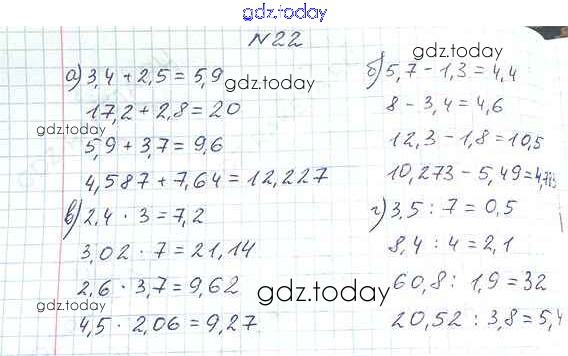 gdz.today
N22
а) 3,4 + 2,5 = 5,9
gdz.today
17,2 + 2,8 = 20
gdz.today
5,9 + 3,7 = 9,6
4,587 + 7,64 = 12,227
gdz.today
б) 5,7 - 1,3 = 4,4
8 - 3,4 = 4,6
12,3 - 1,8 = 10,5
10,273 - 5,49 = 4,783
в) 2,4 · 3 = 7,2
3,02 · 7 = 21,14
2,6 · 3,7 = 9,62
gdz.today
4,5 · 2,06 = 9,27
gdz.today
г) 3,5 : 7 = 0,5
8,4 : 4 = 2,1
60,8 : 1,9 = 32
20,52 : 3,8 = 5,4